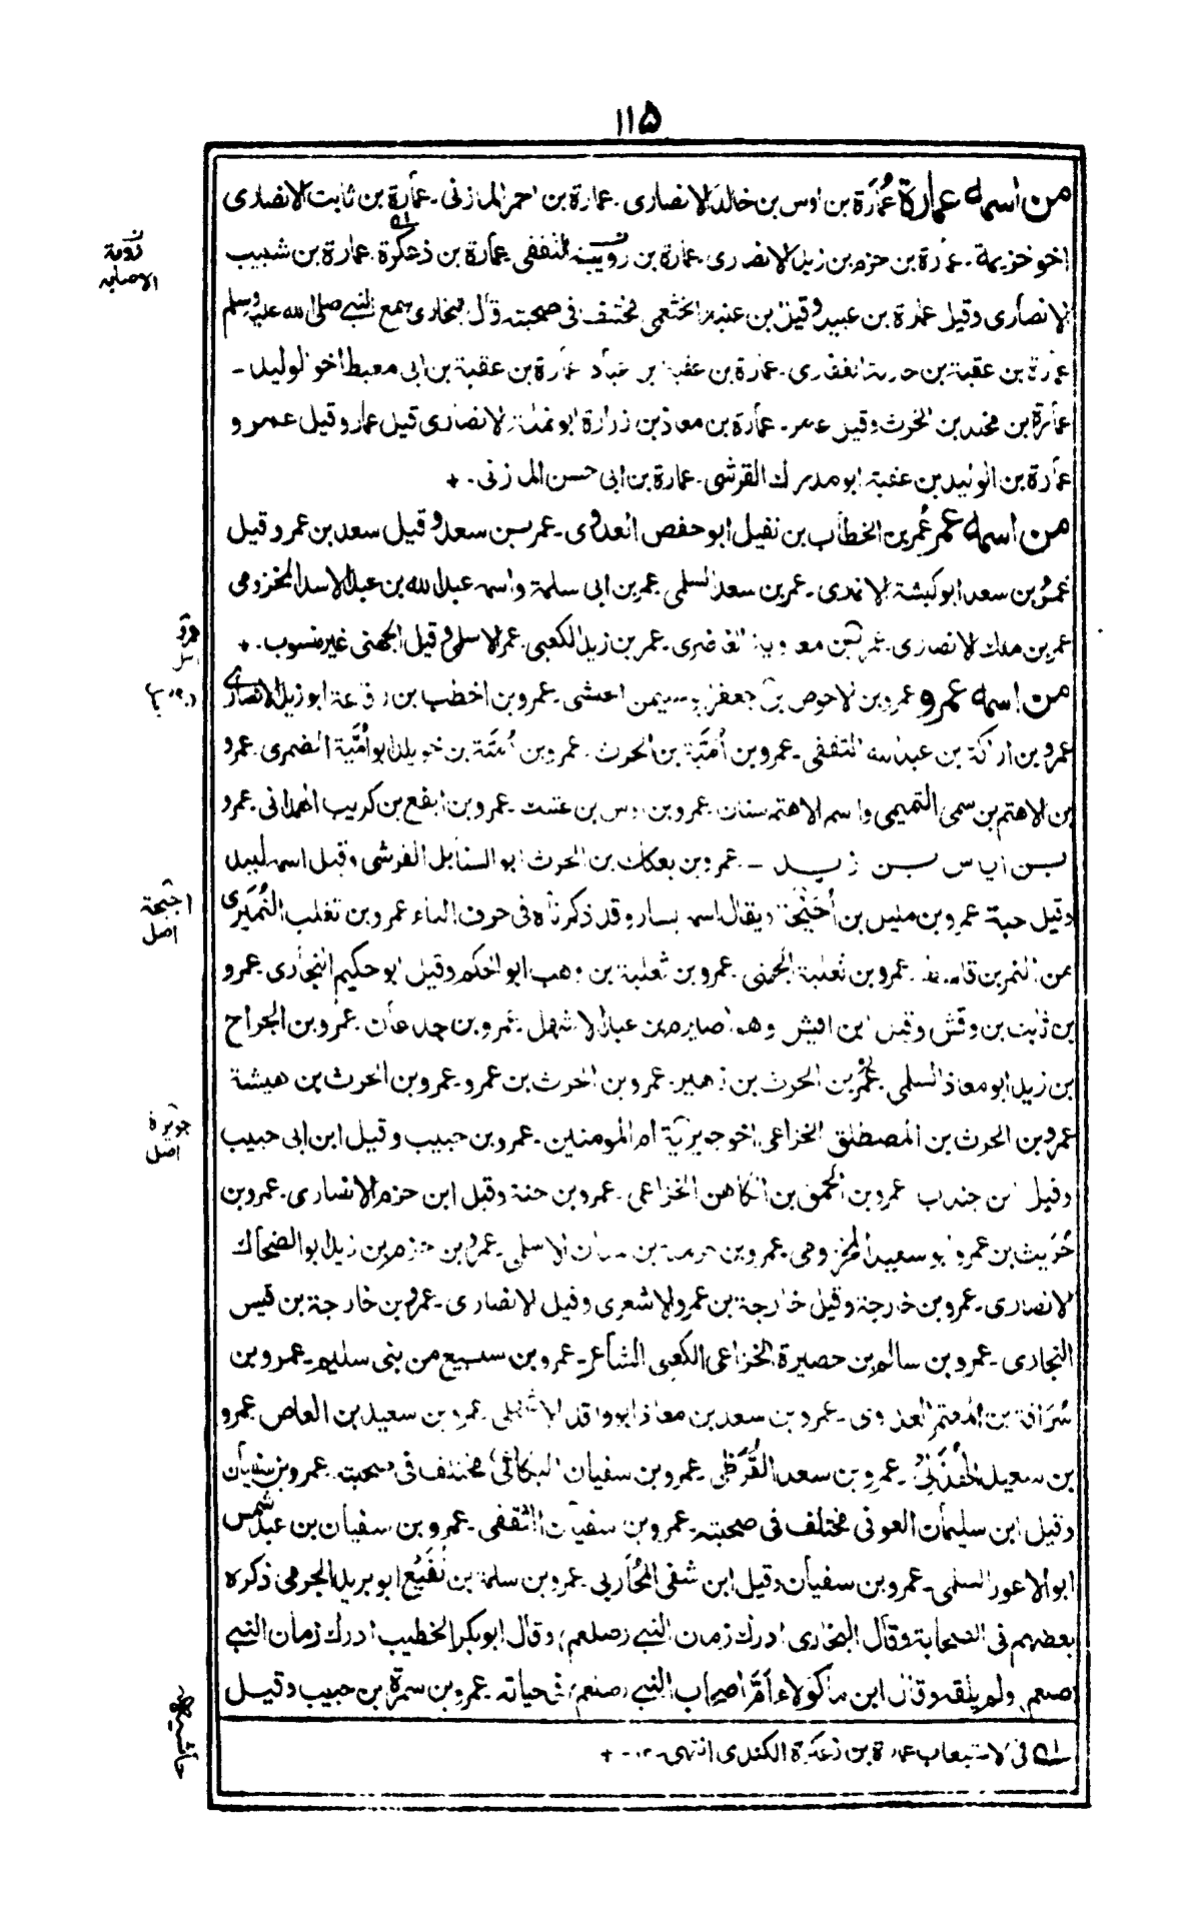 ١١۵
من اسمه عمارة عُمَارة بن اوس بن خالد الانصاری۔ عمارة بن احمر المازنی۔ عمارة بن ثابت الانصاری
اخو خزیمة۔ عمارة بن حزم بن زید الانصاری۔ عمارة بن رویبة الثقفی عمارة بن زعكرة۔ عمارة بن شبیب
الانصاری وقیل عمارة بن عبید وقیل بن عنبة الخثعمی مختلف فی صحبته وقال البخاری سمع النبی صلی الله علیه وسلم
عمارة بن عقبة بن حارثة الغفاری۔ عمارة بن عقبة بن عباد عمارة بن عقبة بن ابی معیط اخو الولید۔
عمارة بن مخلد بن الحرث وقیل عامر۔ عمارة بن معاذ بن زرارة ابو نملة الانصاری قیل عمار وقیل عمرو
عمارة بن الولید بن عقبة ابو مدرك القرشی۔ عمارة بن ابی حسن المازنی۔
من اسمه عمر عُمر بن الخطاب بن نفیل ابو حفص العدوی۔ عمر بن سعد وقیل سعد بن عمر وقیل
عمرو بن سعد ابو كبشة الانماری۔ عمر بن سعد السلمی عمر بن ابی سلمة واسمه عبد الله بن عبد الاسد المخزومی
عمر بن مالك الانصاری۔ عمر بن معاویة الغاضری۔ عمر بن زید الكعبی۔ عمر الاسلمی وقیل الجهنی غیر منسوب۔
من اسمه عمرو عمرو بن الاحوص بن جعفر اعشی۔ عمرو بن اخطب بن رفاعة ابو زید الانصاری
عمرو بن اراكة بن عبد الله الثقفی۔ عمرو بن اُمَیَّة بن الحرث۔ عمرو بن اُمَیَّة بن خویلد ابو اُمَیَّة الضمری۔ عمرو
بن الاهتم بن سمی التمیمی واسم الاهتم سنان۔ عمرو بن اوس بن عتیك۔ عمرو بن ایفع بن كریب الهمدانی۔ عمرو
بن ایاس بن زید۔ عمرو بن بعكك بن الحرث ابو السنابل القرشی وقیل اسمه لبید
وقیل حبة عمرو بن ملیل بن اُحَیْحَة ویقال اسمه یسار وقد ذكرناه فی حرف الباء عمرو بن تغلب النُمَیری
من النمر بن قاسط۔ عمرو بن ثعلبة الجهنی۔ عمرو بن ثعلبة بن وهب ابو الحكم وقیل ابو حكیم النجاری عمرو
بن ثابت بن وقش وقیل ابن اقیش وهو اصیرم بن عبد الاشهل۔ عمرو بن جدعان۔ عمرو بن الجراح
بن زید ابو معاذ السلمی۔ عَمْرو بن الحرث بن زهیر۔ عمرو بن الحرث بن عمرو۔ عمرو بن الحرث بن هیشة
عمرو بن الحرث بن المصطلق الخزاعی اخو جویریة ام المومنین۔ عمرو بن حبیب وقیل ابن ابی حبیب
وقیل ابن جندب عمرو بن الحمق بن الكاهن الخزاعی۔ عمرو بن حنة وقیل ابن حزم الانصاری۔ عمرو بن
حُرَیث بن عمرو ابو سعید المخزومی۔ عمرو بن بن سنان الاسلمی۔ عمرو بن حزم بن زید ابو الضحاك
الانصاری۔ عمرو بن خارجة وقیل خارجة بن عمرو الاشعری وقیل الانصاری۔ عمرو بن خارجة بن قیس
النجاری۔ عمرو بن سالم بن حصیرة الخزاعی الكعبی الشاعر۔ عمرو بن سبیع من بنی سلیم۔ عمرو بن
سُرَاقة بن المعتمر العدوی۔ عمرو بن سعد بن معاذ ابو واقد الاشهلی عمرو بن سعید بن العاص عمرو
بن سعید الهُذَلیُّ۔ عمرو بن سعد القُرَظی۔ عمرو بن سفیان البكائی مختلف فی صحبته۔ عمرو بن سفیان
وقیل ابن سلیمان العوفی مختلف فی صحبته۔ عمرو بن سفیان الثقفی۔ عمرو بن سفیان بن عبد شمس
ابو الاعور السلمی۔ عمرو بن سفیان وقیل ابن شفی المُحَاربی۔ عمرو بن سلمة بن نُفَیْع ابو برید الجرمی ذكره
بعضهم فی الصحابة وقال البخاری ادرك زمان النبی (صلعم) وقال ابو بكر الخطیب ادرك زمان النبی
صلعم ولم یلقه وقال ابن ماكولا اَمَّ اصحاب النبی (صلعم) فی حیاته۔ عمرو بن سمرة بن حبیب وقیل
فی الاستیعاب عمارة بن زعكرة الكندی انتهی۔ ۱۲۔
رویبة
الاصابه
اصل
اصل
جویرة
اصل
حاشیه